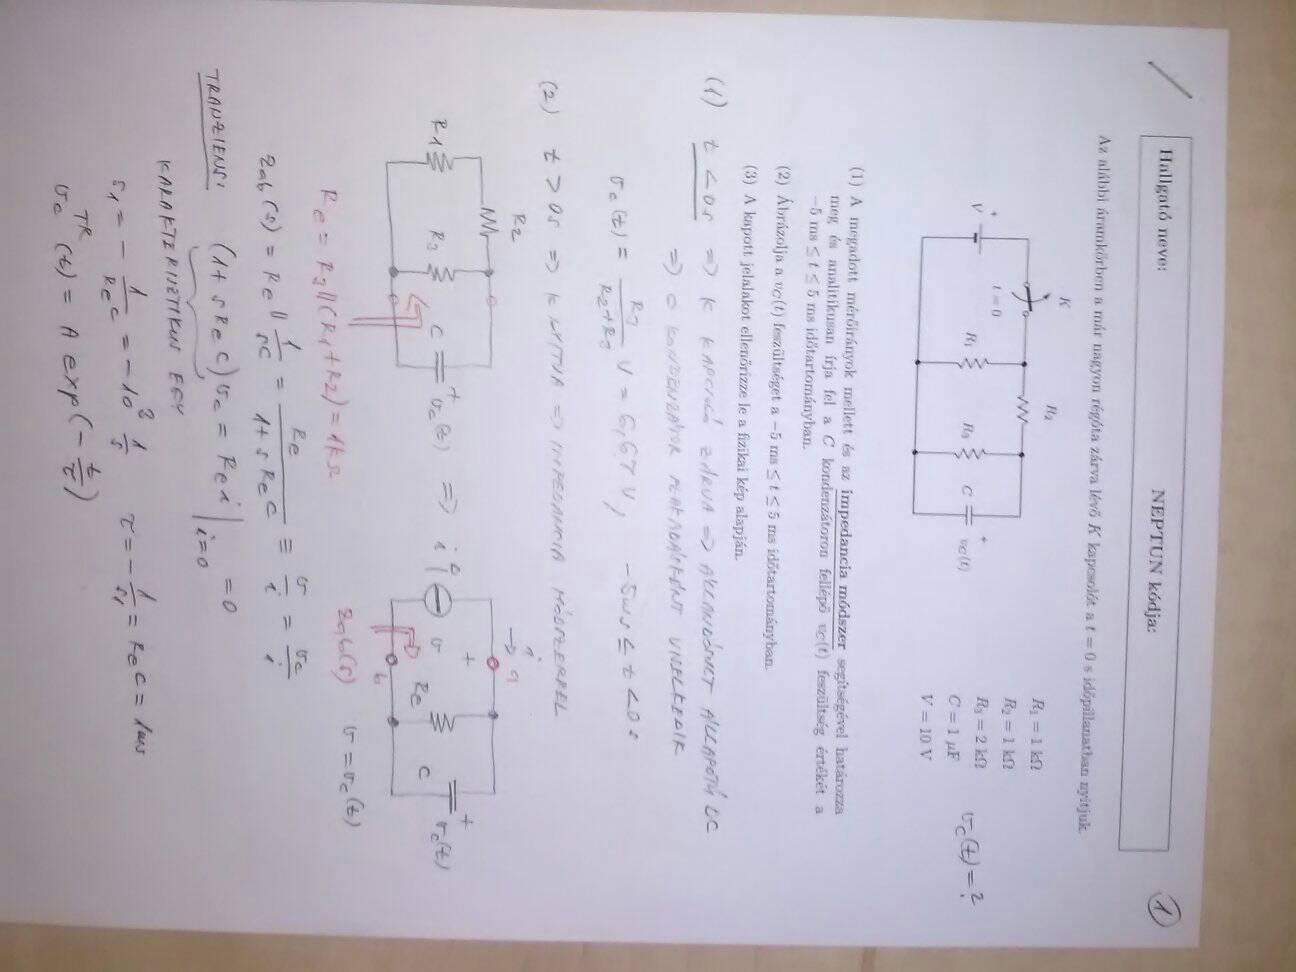 1
Hallgató neve: NEPTUN kódja:
Az alábbi áramkörben a már nagyon régóta zárva lévő K kapcsolót a t = 0 s időpillanatban nyitjuk.
K
t = 0
V
+
R₁
R₂
R₃
C
+
v_C(t)
R₁ = 1 kΩ
R₂ = 1 kΩ
R₃ = 2 kΩ
C = 1 µF
V = 10 V
v_C(t) = ?
(1) A megadott mérőirányok mellett és az impedancia módszer segítségével határozza
meg és analitikusan írja fel a C kondenzátoron fellépő v_C(t) feszültség értékét a
−5 ms ≤ t ≤ 5 ms időtartományban.
(2) Ábrázolja a v_C(t) feszültséget a −5 ms ≤ t ≤ 5 ms időtartományban.
(3) A kapott jelalakot ellenőrizze le a fizikai kép alapján.
(1) t < 0s ⇒ K KAPCSOLÓ ZÁRVA ⇒ ÁLLANDÓSULT ÁLLAPOTÚ DC
⇒ C KONDENZÁTOR SZAKADÁSKÉNT VISELKEDIK
v_c(t) = R₃/(R₂+R₃) V = 6,67 V, −5ms ≤ t < 0s
(2) t > 0s ⇒ K NYITVA ⇒ IMPEDANCIA MÓDSZERREL
R1
R2
R3
C
+
v_c(t) ⇒
i
v
+
i
a
b
Re
C
+
v_c(t)
Zab(s)
v = v_c(t)
Re = R₃||(R₁+R₂) = 1kΩ
Zab(s) = Re || 1/sC = Re/(1+sReC) ≡ v/i = v_c/i
TRANZIENS: (1+sReC) v_c = Re i |i=0 = 0
KARAKTERISZTIKUS EGY
s₁ = − 1/(ReC) = −10³ 1/s τ = − 1/s₁ = ReC = 1ms
v_c^TR(t) = A exp(− t/τ)